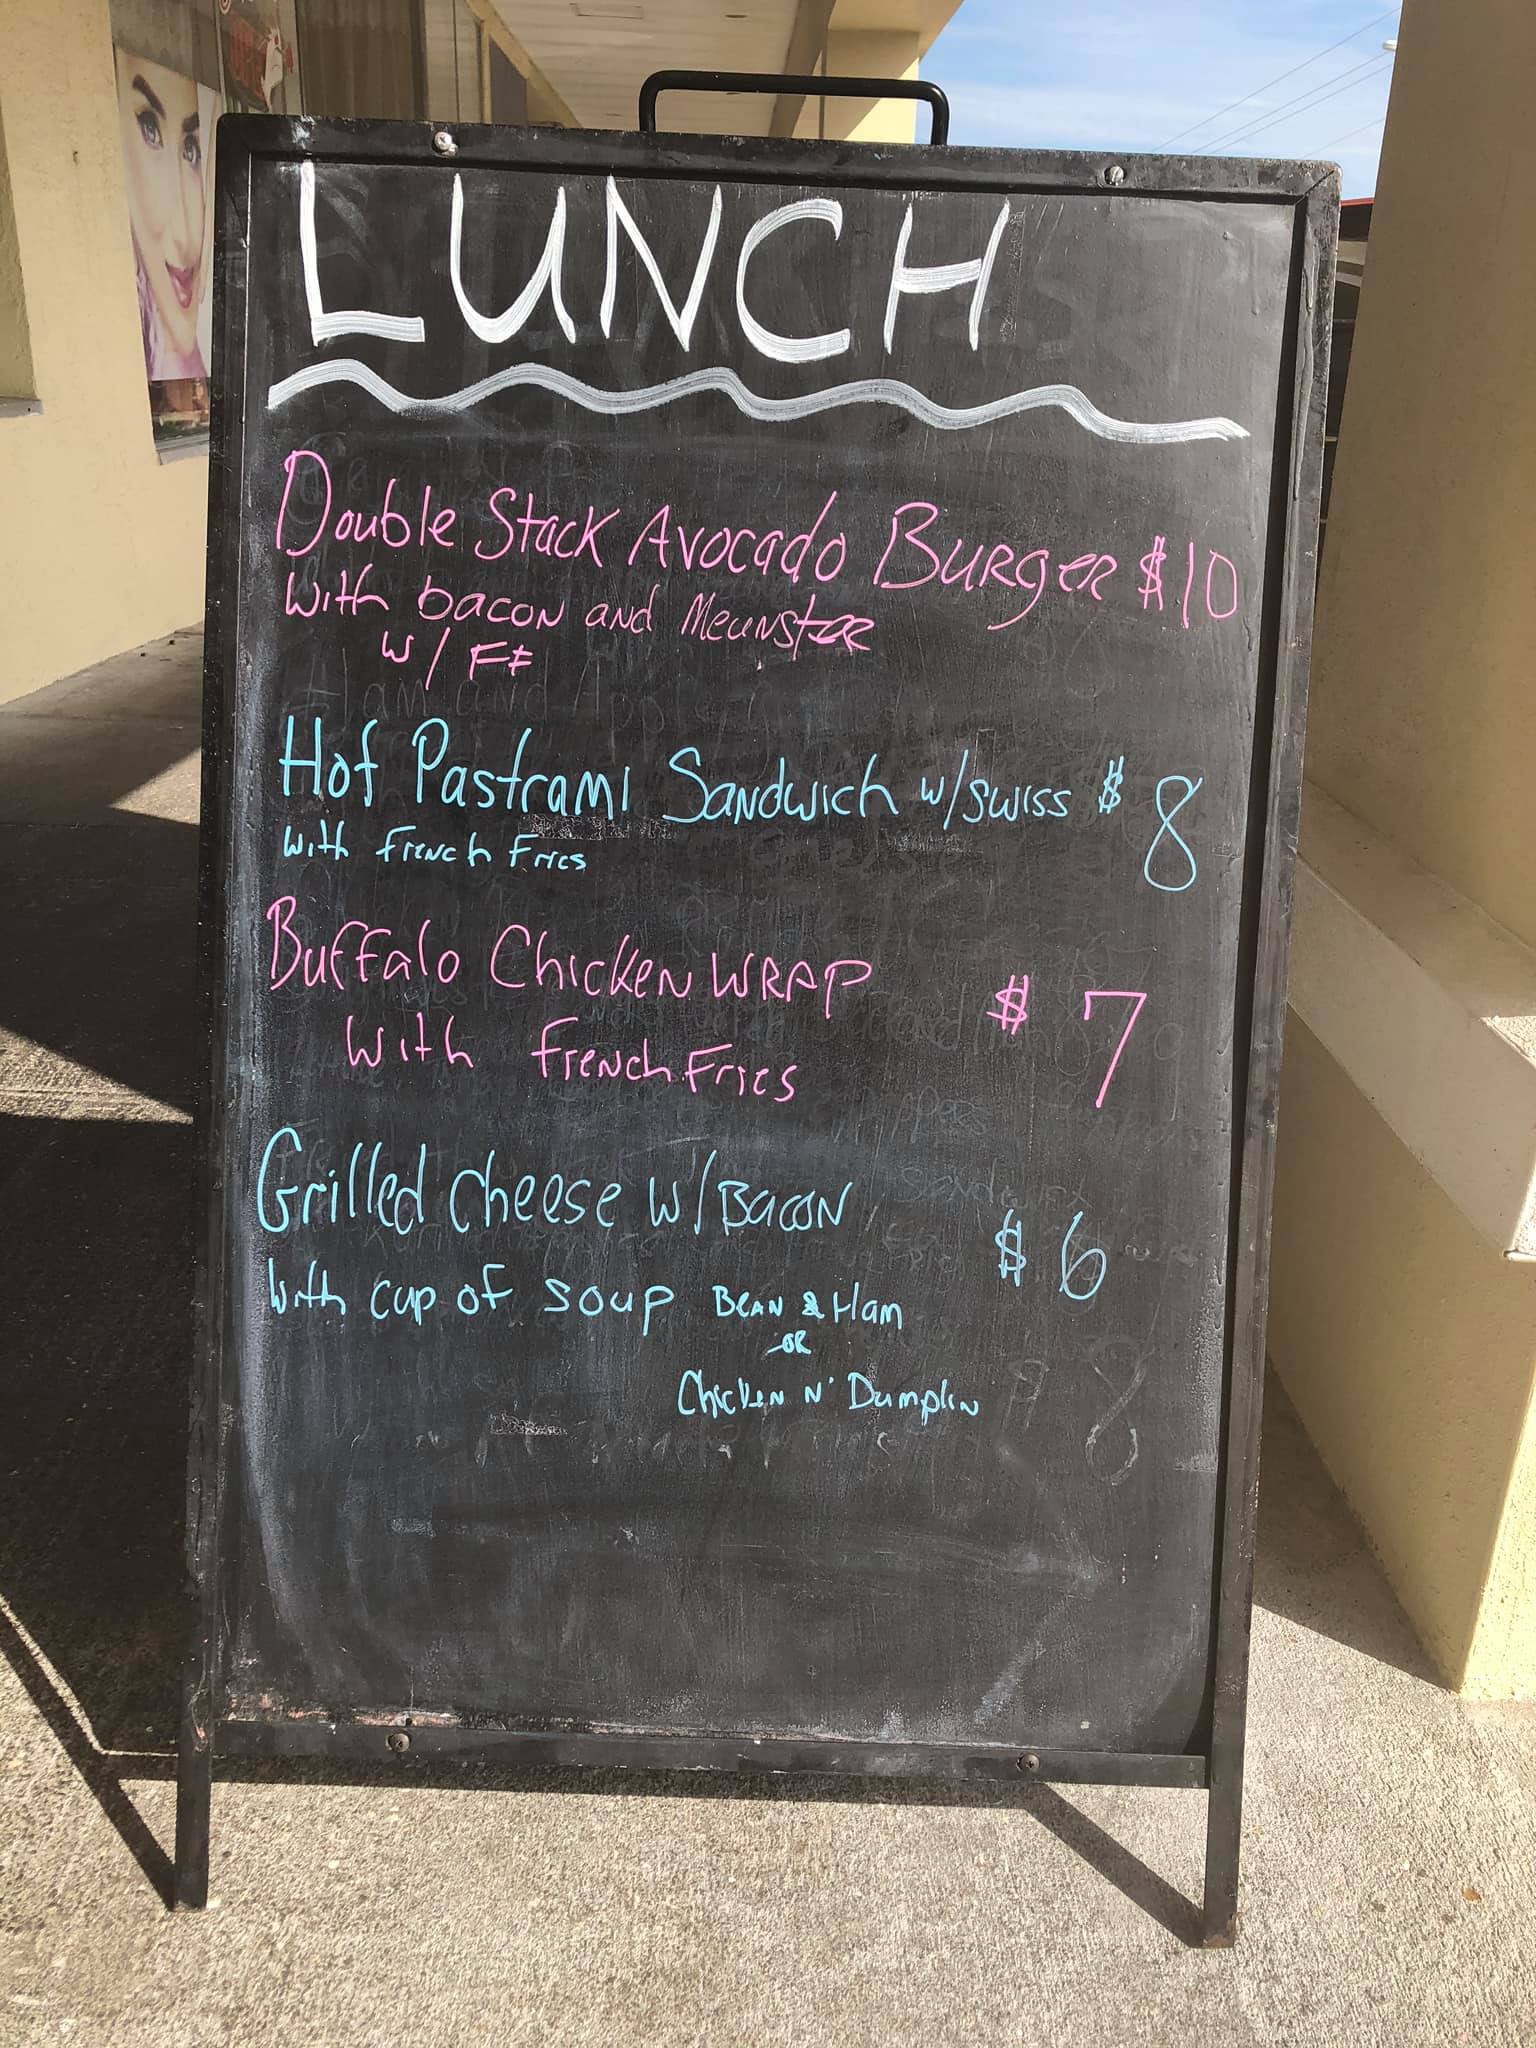 LUNCH
Double Stack Avocado Burger $10
with bacon and Meunster
w/ FF
Hot Pastrami Sandwich w/swiss $8
with french Fries
Buffalo Chicken WRAP $7
with french Fries
Grilled cheese w/Bacon $6
With cup of soup Bean & Ham
or
Chicken N' Dumplin